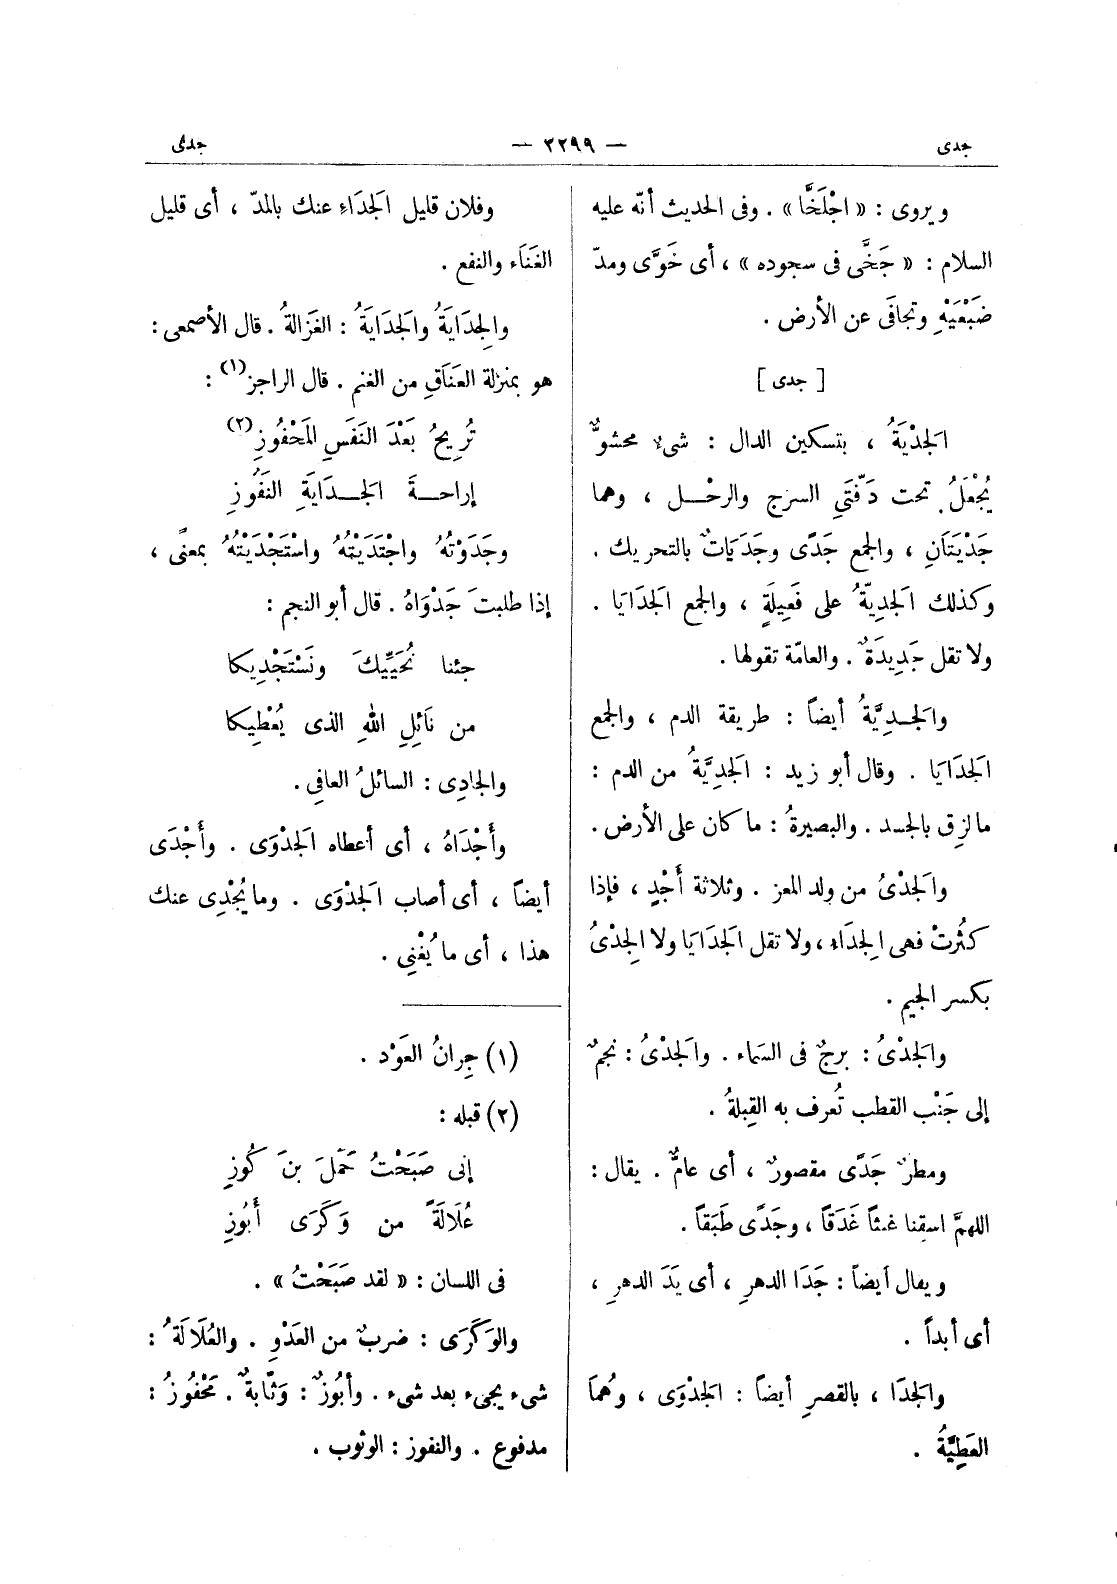 جدى
— ٢٢٩٩ —
جدى
ويروى : « اجْلَخَّا » . وفى الحديث أنّه عليه
السلام : « جَخَّى فى سجوده » ، أى خَوَّى ومدّ
ضَبْعَيْهِ وتجافَى عن الأرض .
[ جدى ]
الجَدْيَةُ ، بتسكين الدال : شىء محشوٌّ
يُجْعَلُ تحت دَفّتَىِ السرج والرحْل ، وهما
جَدْيَتَانِ ، والجمع جَدًى وجَدَيَاتٌ بالتحريك .
وكذلك الجَدِيّةُ على فَعِيلَةٍ ، والجمع الجَدَايَا .
ولا تقل جَدِيدَةٌ . والعامّة تقولها .
والجَدِيَّةُ أيضاً : طريقة الدم ، والجمع
الجَدَايَا . وقال أبو زيد : الجَدِيَّةُ من الدم :
ما لزِق بالجسد . والبصيرةُ : ما كان على الأرض .
والجَدْىُ من ولد المعز . وثلاثة أَجْدٍ ، فإذا
كثُرتْ فهى الجِدَاء ، ولا تقل الجَدَايَا ولا الجِدْىُ
بكسر الجيم .
والجَدْىُ : برجٌ فى السَماء . والجَدْىُ : نجمٌ
إلى جَنْب القطب تُعرف به القِبلةُ .
ومطرٌ جَدًى مقصورٌ ، أى عامٌّ . يقال :
اللهمَّ اسقِنا غيثاً غَدَقاً ، وجَدًى طَبَقاً .
ويقال أيضاً : جَدَا الدهرِ ، أى يَدَ الدهرِ ،
أى أبداً .
والجَدَا ، بالقصرِ أيضاً : الجَدْوَى ، وهُما
العَطِيَّةُ .
وفلان قليل الجَدَاءِ عنك بالمدّ ، أى قليل
الغَنَاء والنفع .
والجِدَايَةُ والجَدَايَةُ : الغَزالةُ . قال الأصمعى :
هو بمنزلة العنَاقِ من الغنم . قال الراجز(١) :
تُرِيحُ بَعْدَ النَفَسِ المَحْفُوزِ(٢)
إراحةَ الجَدَايَةِ النَفُوزِ
وجَدَوْتهُ واجْتَدَيْتهُ واسْتَجْدَيْتهُ بمعنًى ،
إذا طلبتَ جَدْوَاهُ . قال أبو النجم :
جئنا نُحَيِّيكَ ونَسْتَجْدِيكا
من نَائِلِ اللهِ الذى يُعْطِيكا
والجادِى : السائلُ العافِى .
وأَجْدَاهُ ، أى أعطاه الجَدْوَى . وأَجْدَى
أيضاً ، أى أصاب الجَدْوَى . وما يُجْدِى عنك
هذا ، أى ما يُغْنِى .
(١) جِرانُ العَوْد .
(٢) قبله :
إنى صَبَحْتُ حَمَلَ بنَ كُوزِ
عُلَالَةً من وَكَرَى أَبُوزِ
فى اللسان : « لقد صَبَحْتُ » .
والوَكَرَى : ضربٌ من العَدْوِ . والعُلَالَةُ :
شىء يجىء بعد شىء . وأَبُوزٌ : وَثَّابةٌ . مَحْفُوزُ :
مدفوع . والنفوز : الوثوب .